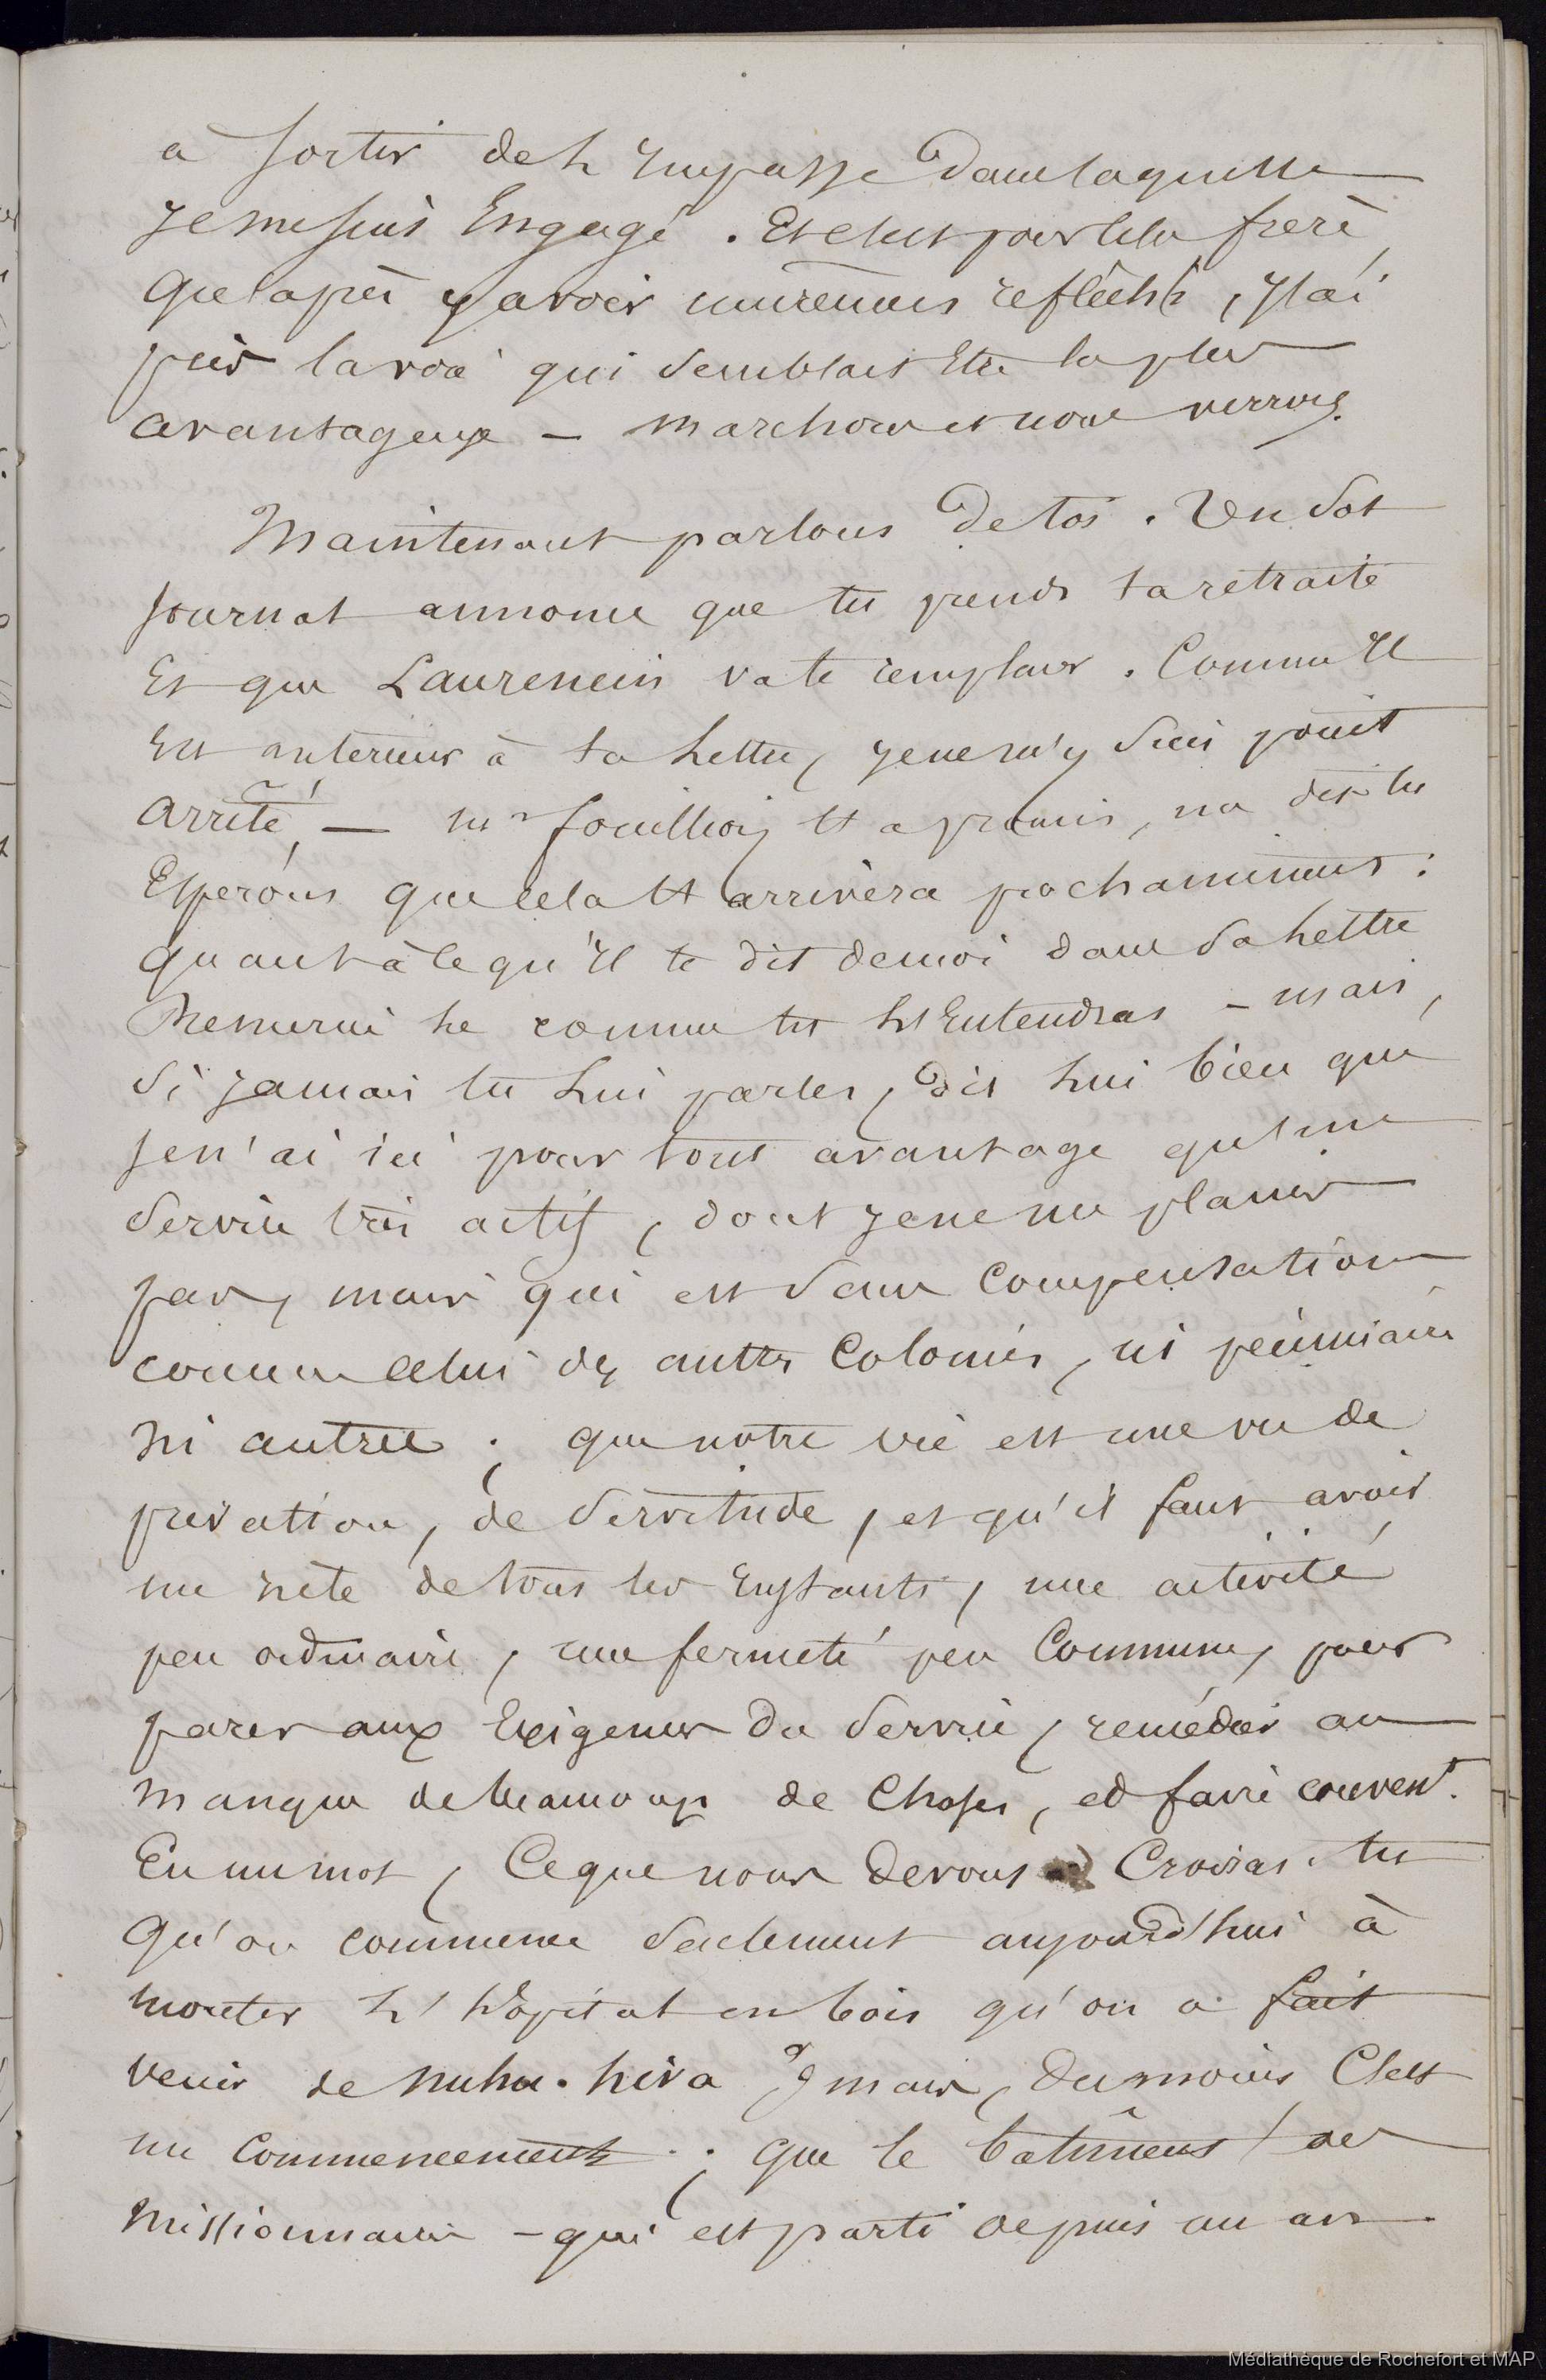 à sortir de L'Impasse dans laquelle
Je me suis Engagé. Et c'est pour cela frère,
Qu'après y avoir murement reflêchi, J'ai
pris la voie qui semblait Etre la plus
avantageuse — marchons et nous verrons.
Maintenant parlons de toi. Un sot
Journal annonce que tu prends ta retraite
Et que Laurencin va te remplacer. Comme Il
Est anterieur à ta Lettre, Je ne m'y suis point
arrêté, — Mr fouillioy t'a promis, me dis tu
Esperons que cela t'arrivera prochainement :
quant à ce qu'Il te dit de moi dans sa Lettre
Remercie Le comme tu L'Entendras — mais,
si Jamais tu Lui parles, dis Lui bien que
Je n'ai ici pour tout avantage qu'un
service très actif, dont Je ne me plains
pas, mais qui est sans Compensation
comme celui des autres Colonies, ni pécuniaire
ni autre ; que notre vie est une vie de
privation, de servitude, et qu'il faut avoir
un zèle de tous les Instants, une activité
peu ordinaire, une fermeté peu Commune, pour
parer aux Exigences du service, remédier au
manque de beaucoup de Choses, et faire convent.
En un mot, Ce que nous devons Croiras-tu
Qu'on commence seulement aujourd'hui à
monter L'hôpital en bois qu'on a fait
venir de nuhu-hiva ? mais, du moins C'est
un Commencement . ; que le batîment des
missionnaires — qui est parti depuis un an